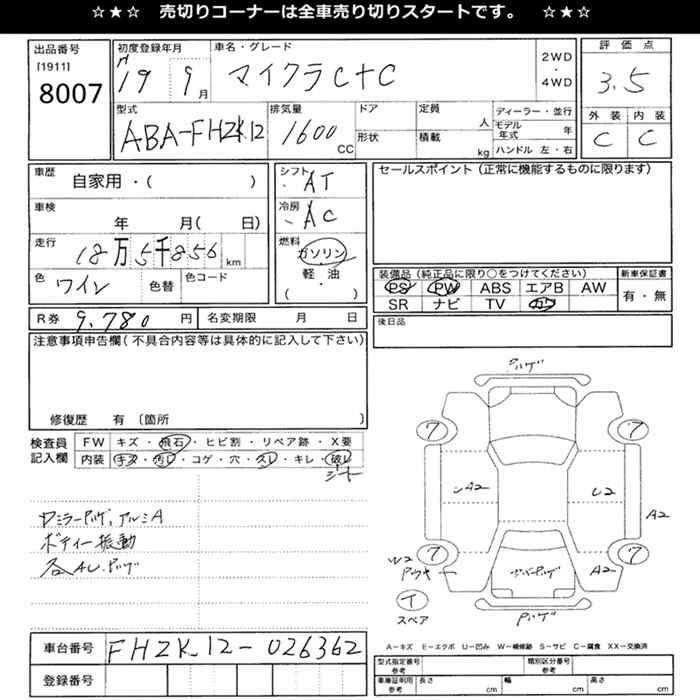 ☆★☆　売切りコーナーは全車売り切りスタートです。　☆★☆
出品番号
[1911]
8007
初度登録年月
H
19 9月
車名・グレード
マイクラC+C
2WD
・
4WD
評価点
3.5
外装 内装
C C
型式
ABA-FHZK12
排気量
1600 CC
ドア
形状
定員
人
積載
kg
ディーラー・並行
モデル年式 年
ハンドル 左・右
車歴
自家用・( )
車検
年 月( 日)
走行
18万5千856 km
色
ワイン
色替
色コード
シフト
AT
冷房
AC
燃料
ガソリン
・
軽・油
( )
セールスポイント（正常に機能するものに限ります）
装備品（純正品に限り○をつけてください）
PS PW ABS エアB AW
SR ナビ TV カワ
新車保証書
有・無
R券 9,780 円
名変期限 月 日
後日品
注意事項申告欄(不具合内容等は具体的に記入して下さい)
修復歴 有〔箇所 〕
検査員
記入欄
FW キズ・飛石・ヒビ割・リペア跡・X要
内装 キズ・汚レ・コゲ・穴・スレ・キレ・破レ
シート
ロミラーAハゲ、アルミA
ボディー振動
各AU.Aハゲ
Aハゲ
7 7
UA2 U2 A2
W2
7 7
A2
T
スペア
Aハゲ
車台番号 FHZK12-026362
登録番号
A－キズ E－エクボ U－凹み W－補修跡 S－サビ C－腐食 XX－交換済
型式指定番号
参考
類別区分番号
参考
車庫証明用
参考
長さ cm 幅 cm 高さ cm